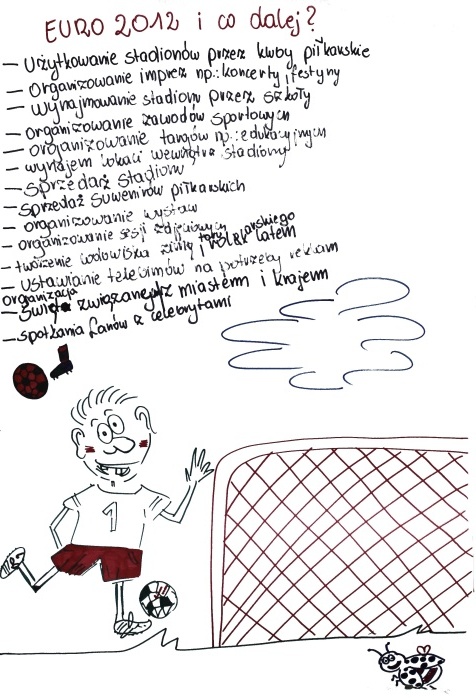 EURO 2012 i co dalej?
– Użytkowanie stadionów przez kluby piłkarskie
– organizowanie imprez np.: koncerty, festyny
– wynajmowanie stadionu przez szkoły
– organizowanie zawodów sportowych
– organizowanie targów np.: edukacyjnych
– wynajem lokali wewnątrz stadionu
– sprzedaż stadionu
– sprzedaż suwenirów piłkarskich
– organizowanie wystaw
– organizowanie sesji zdjęciowych
– tworzenie lodowiska zimą i toru rolek latem
– ustawianie telebimów na potrzeby reklam
organizacja
– świąt związanych z miastem i krajem
– spotkania fanów z celebrytami
1